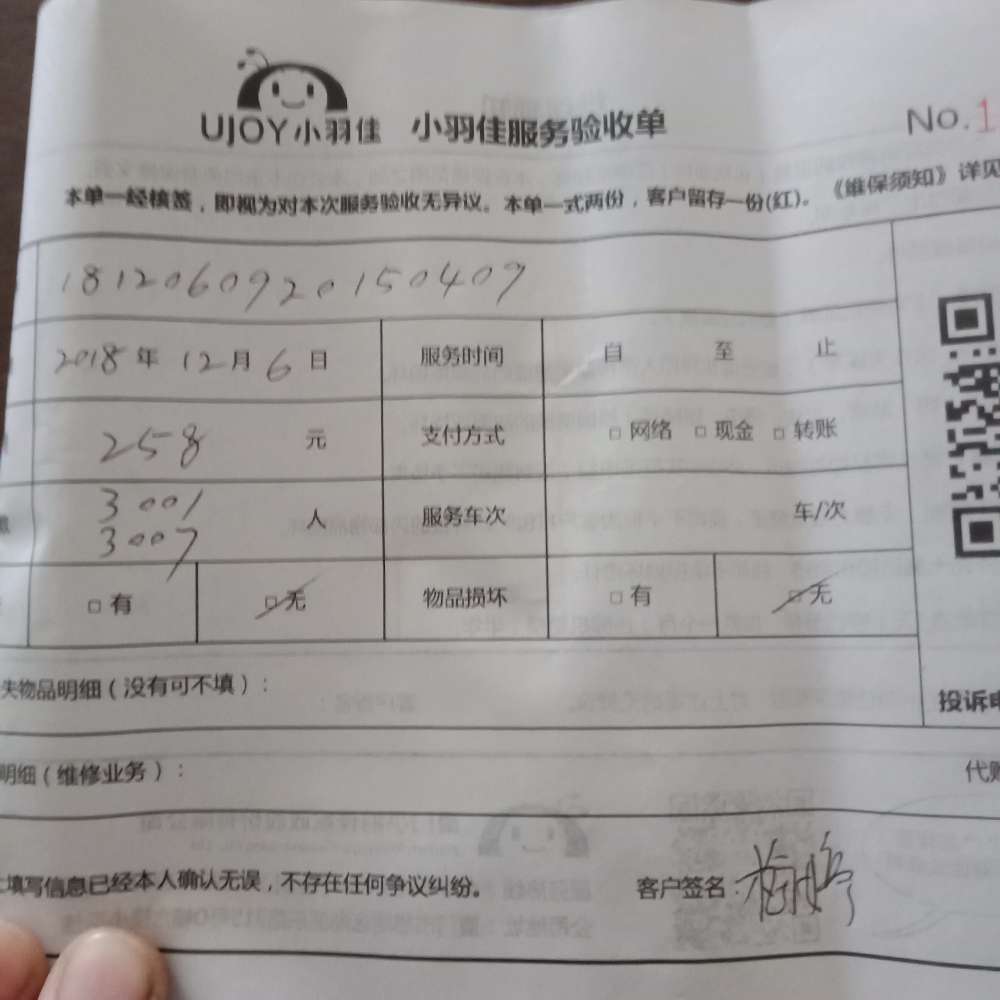 UJOY小羽佳 小羽佳服务验收单 No.1
本单一经核签，即视为对本次服务验收无异议。本单一式两份，客户留存一份(红)。《维保须知》详见
1812060920150409
2018年12月6日 服务时间 自 至 止
258 元 支付方式 □网络 □现金 □转账
3001
3007 人 服务车次 车/次
□有 □无 物品损坏 □有 □无
失物品明细（没有可不填）：
投诉电
明细（维修业务）： 代购
填写信息已经本人确认无误，不存在任何争议纠纷。 客户签名：